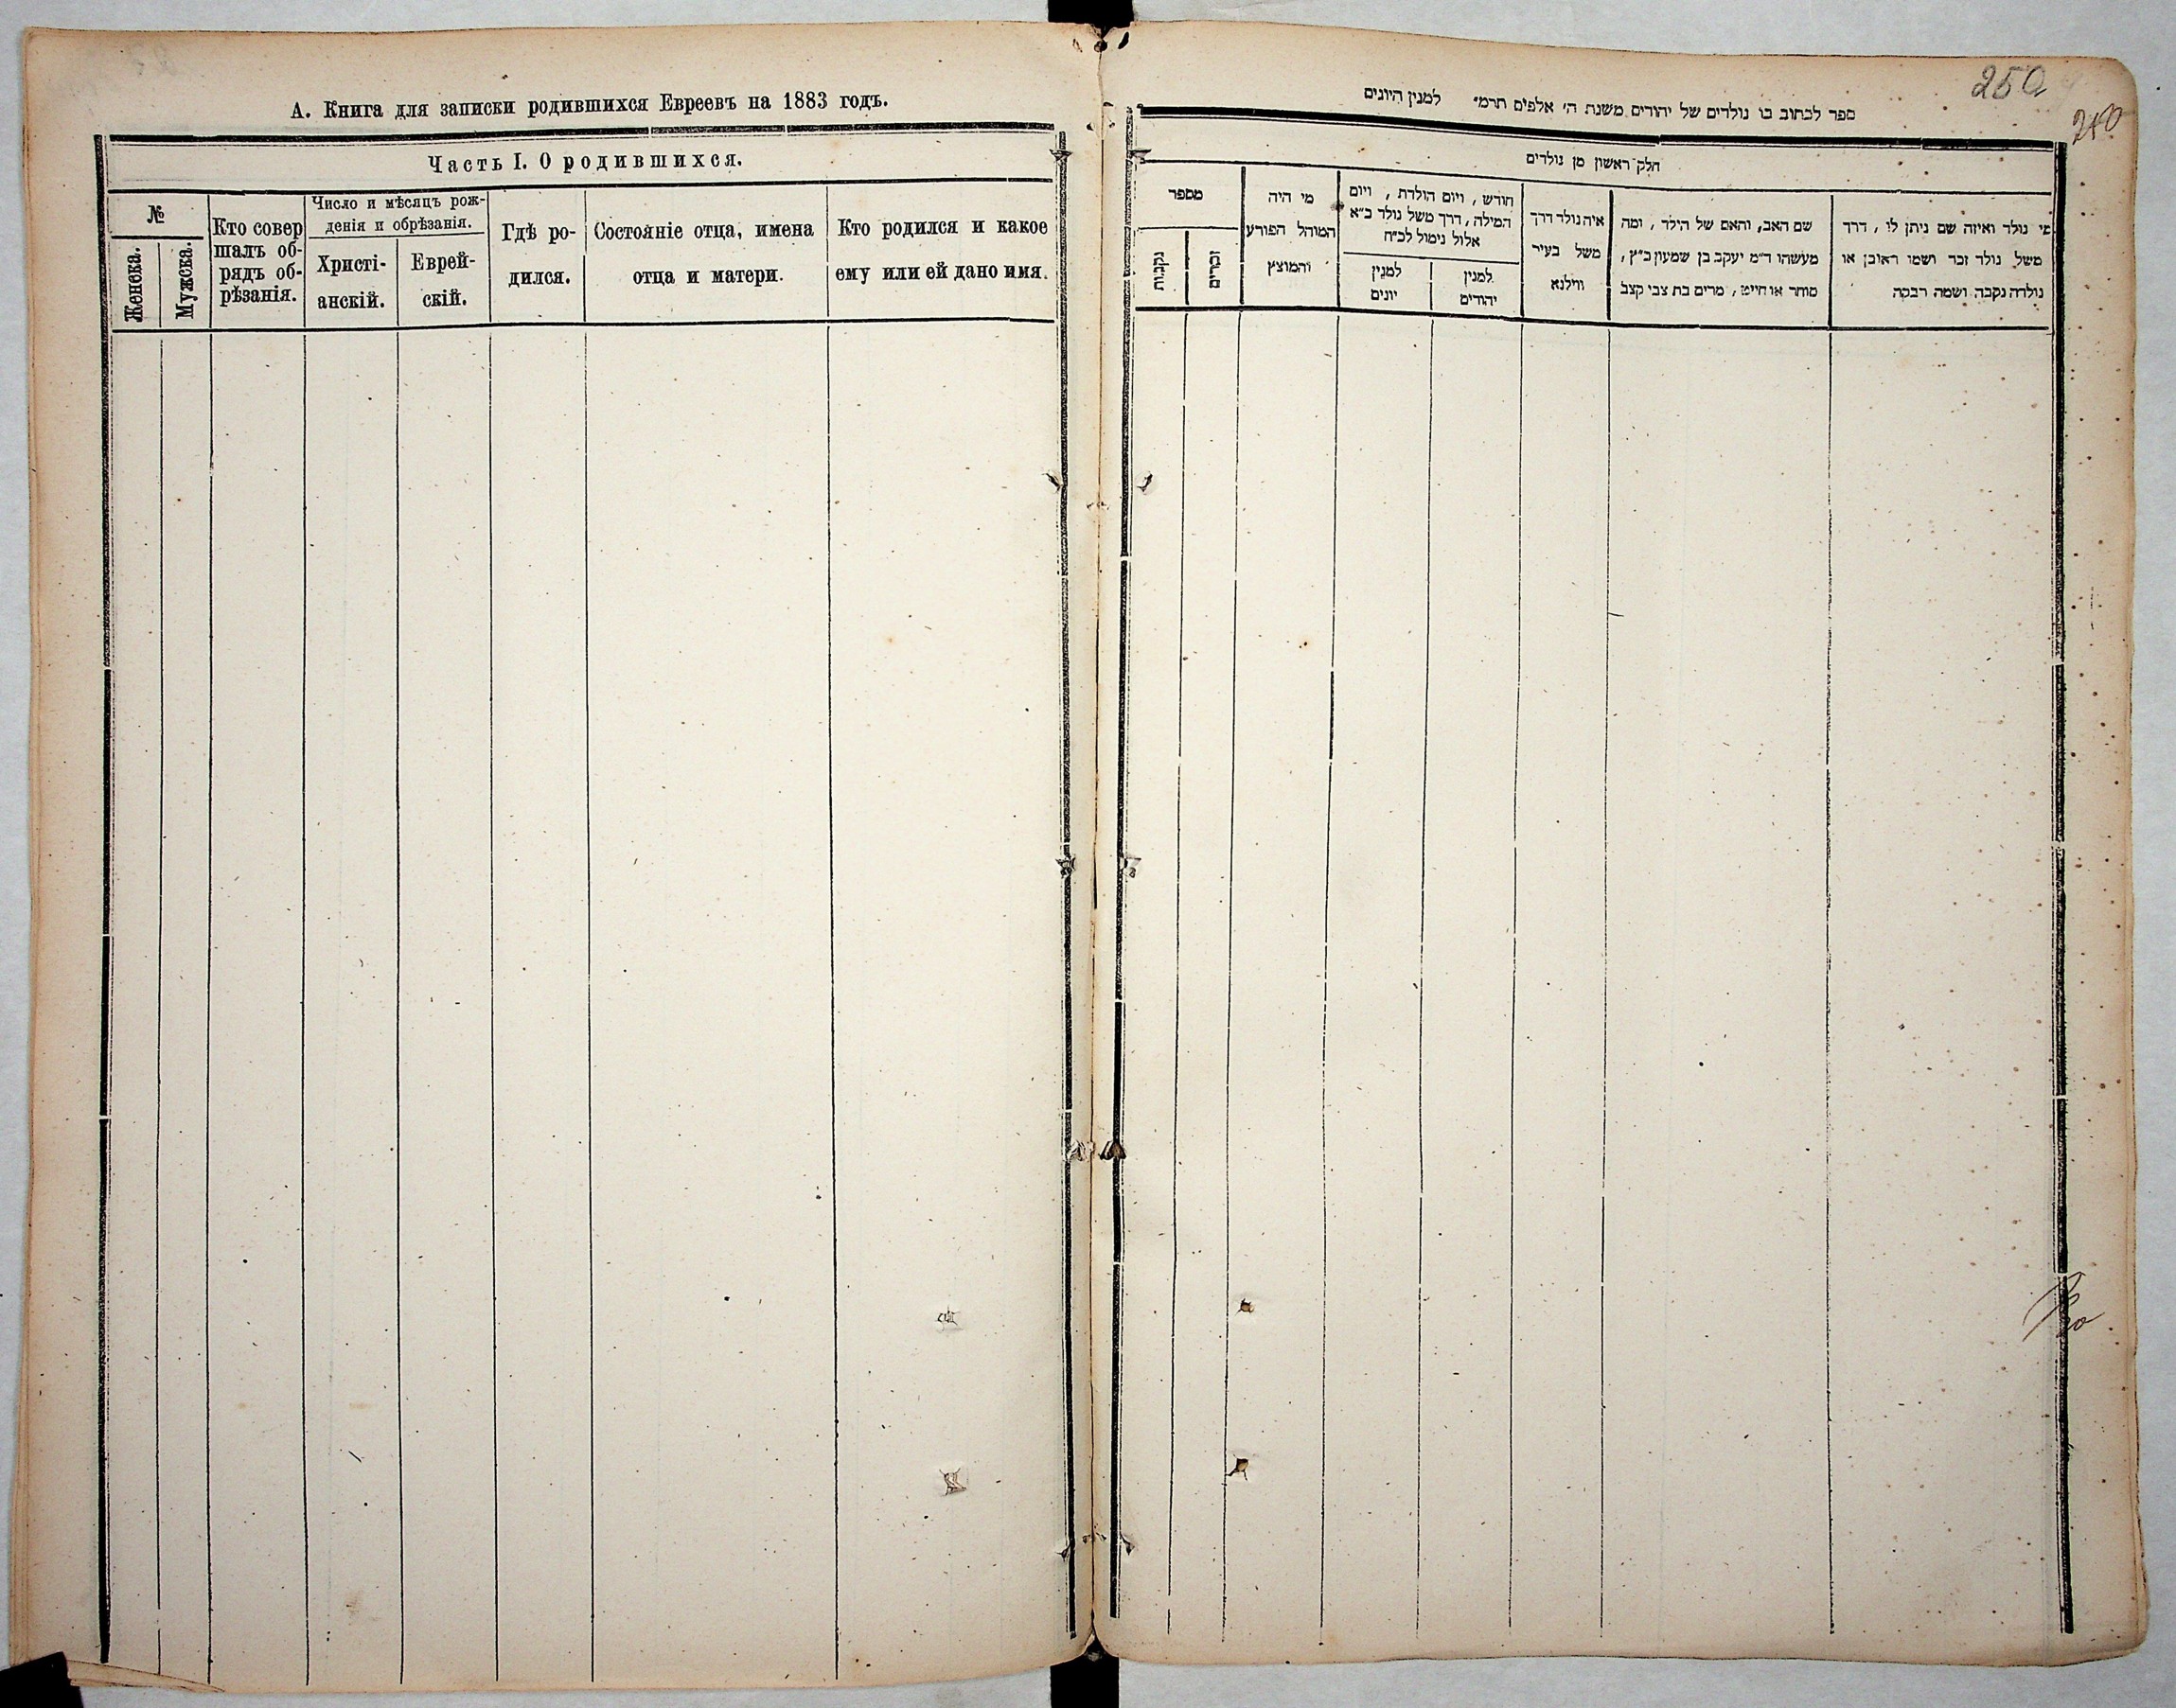 А. Книга для записки родившихся Евреевъ на 1883 годъ.
Часть I. О родившихся.
№
Женска.
Мужска.
Кто совер
шалъ об-
рядъ об-
рѣзанія.
Число и мѣсяцъ рож-
денія и обрѣзанія.
Христі-
анскій.
Еврей-
скій.
Гдѣ ро-
дился.
Состояніе отца, имена
отца и матери.
Кто родился и какое
ему или ей дано имя.
250
250
ספר לכתוב בו נולדים של יהודים משנת ה׳ אלפים תרמ״ למנין היונים
חלק ראשון מן נולדים
מי נולד ואיזה שם ניתן לו, דרך
משל נולד זכר ושמו ראובן או
נולדה נקבה ושמה רבקה
שם האב, והאם של הילד, ומה
מעשהו ד״מ יעקב בן שמעון כ״ץ,
סוחר או חייט, מרים בת צבי קצב
איה נולד דרך
משל בעיר
ווילנא
חודש, ויום הולדת, ויום
המילה, דרך משל נולד כ״א
אלול נימול לכ״ח
למנין
יהודים
למנין
יונים
מי היה
המוהל הפורע
והמוצץ
מספר
זכרים
נקבות